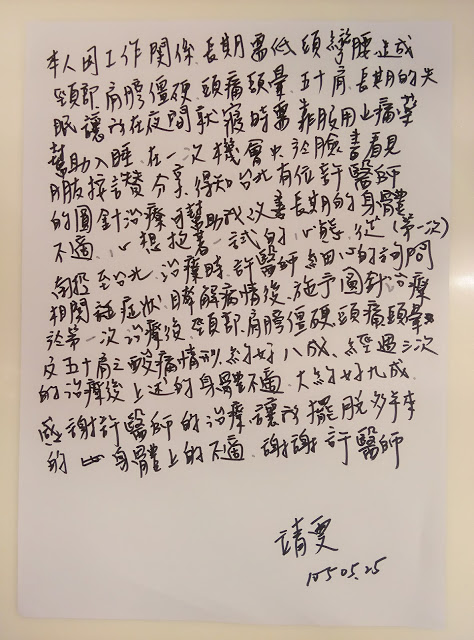 本人因工作關係、長期需低頭彎腰造成
頸部、肩膀僵硬、頭痛頭暈、五十肩、長期的失
眠讓我在夜間就寢時需靠服用止痛藥
幫助入睡、在一次機會中於臉書看見
朋友按讚分享、得知台北有位許醫師
的圓針治療可幫助我改善長期的身體
不適、心想抱著一試的心態、從(第一次)
南投至台北治療時、許醫師細心的詢問
相關症狀、瞭解病情後、施予圓針治療
於第一次治療後、頸部、肩膀僵硬、頭痛頭暈
及五十肩之酸痛情形、約好八成、經過三次
的治療後上述的身體不適、大約好九成、
感謝許醫師的治療讓我擺脫多年來
的身體上的不適、謝謝許醫師
靖雯
105.05.25